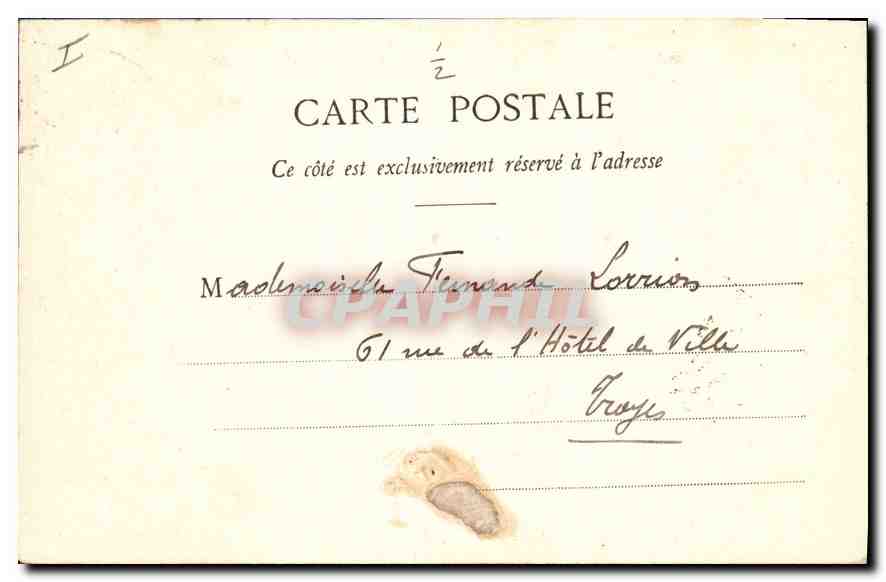 I
1/2
CARTE POSTALE
Ce côté est exclusivement réservé à l'adresse
Mademoiselle Fernande Lorrion
CPAPHIL
61 rue de l'Hôtel de Ville
Troyes